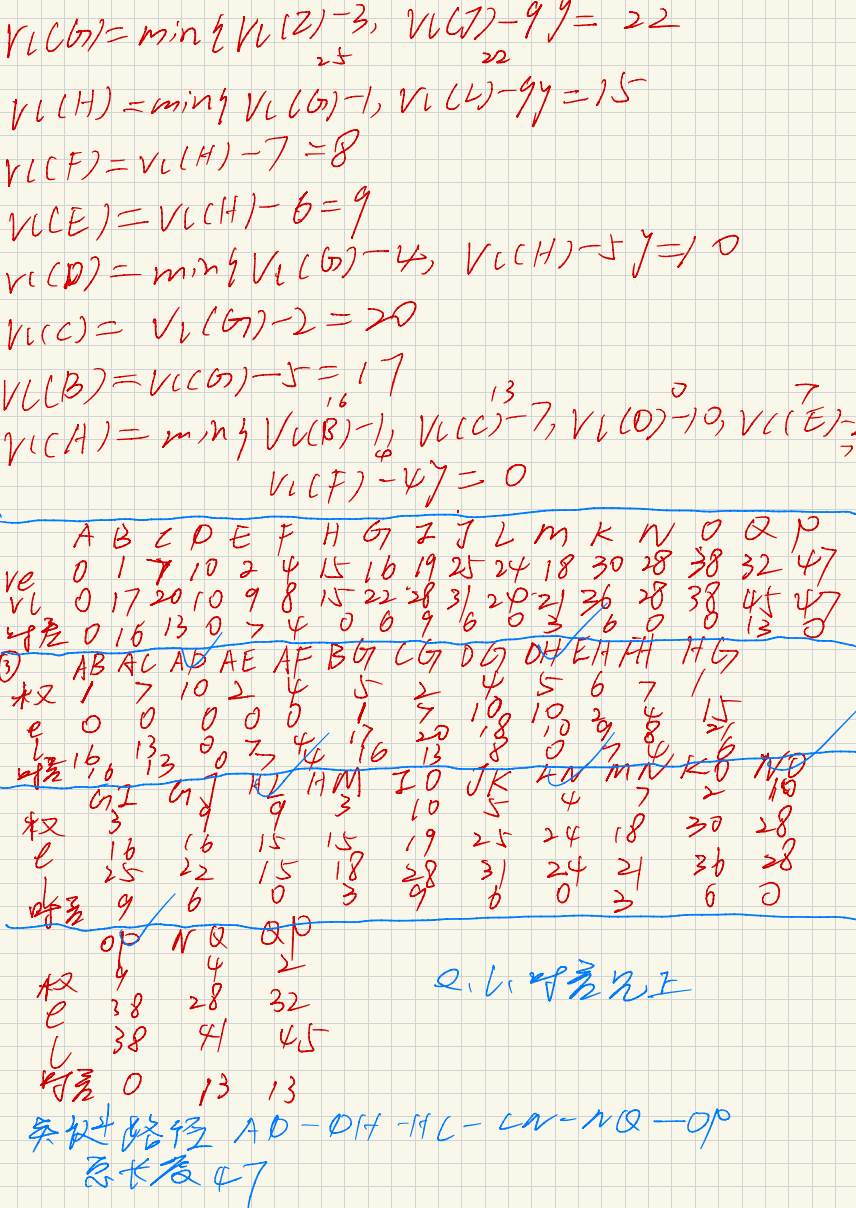 Vl(G)=min{Vl(I)-3, Vl(J)-9}= 22
25 22
Vl(H)=min{Vl(G)-1, Vl(L)-9}=15
Vl(F)=Vl(H)-7=8
Vl(E)=Vl(H)-6=9
Vl(D)=min{Vl(G)-4, Vl(H)-5}=10
Vl(C)= Vl(G)-2=20
Vl(B)=Vl(G)-5=17
16 13 0 7
Vl(A)=min{Vl(B)-1, Vl(C)-7, Vl(D)-10, Vl(E)-2
4
Vl(F)-4}=0
A B C D E F H G I J L M K N O Q P
ve 0 1 7 10 2 4 15 16 19 25 24 18 30 28 38 32 47
vl 0 17 20 10 9 8 15 22 28 31 24 21 36 28 38 45 47
时差 0 16 13 0 7 4 0 6 9 6 0 3 6 0 0 13 0
③ AB AC AD AE AF BG CG DG DH EH FH HG
权 1 7 10 2 4 5 2 4 5 6 7 1
e 0 0 0 0 0 1 7 10 10 2 4 15
l 16 13 0 7 4 17 20 18 10 9 8 21
时差 16 13 0 7 4 16 13 8 0 7 4 6
GI GJ HL HM IO JK LN MN KO NO
权 3 9 9 3 10 5 4 7 2 10
e 16 16 15 15 19 25 24 18 30 28
l 25 22 15 18 28 31 24 21 36 28
时差 9 6 0 3 9 6 0 3 6 0
OP NQ QP
权 9 4 2
e 38 28 32
l 38 41 45
时差 0 13 13
e、l、时差见上
关键路径 AD-DH-HL-LN-NQ-OP
总长度 47